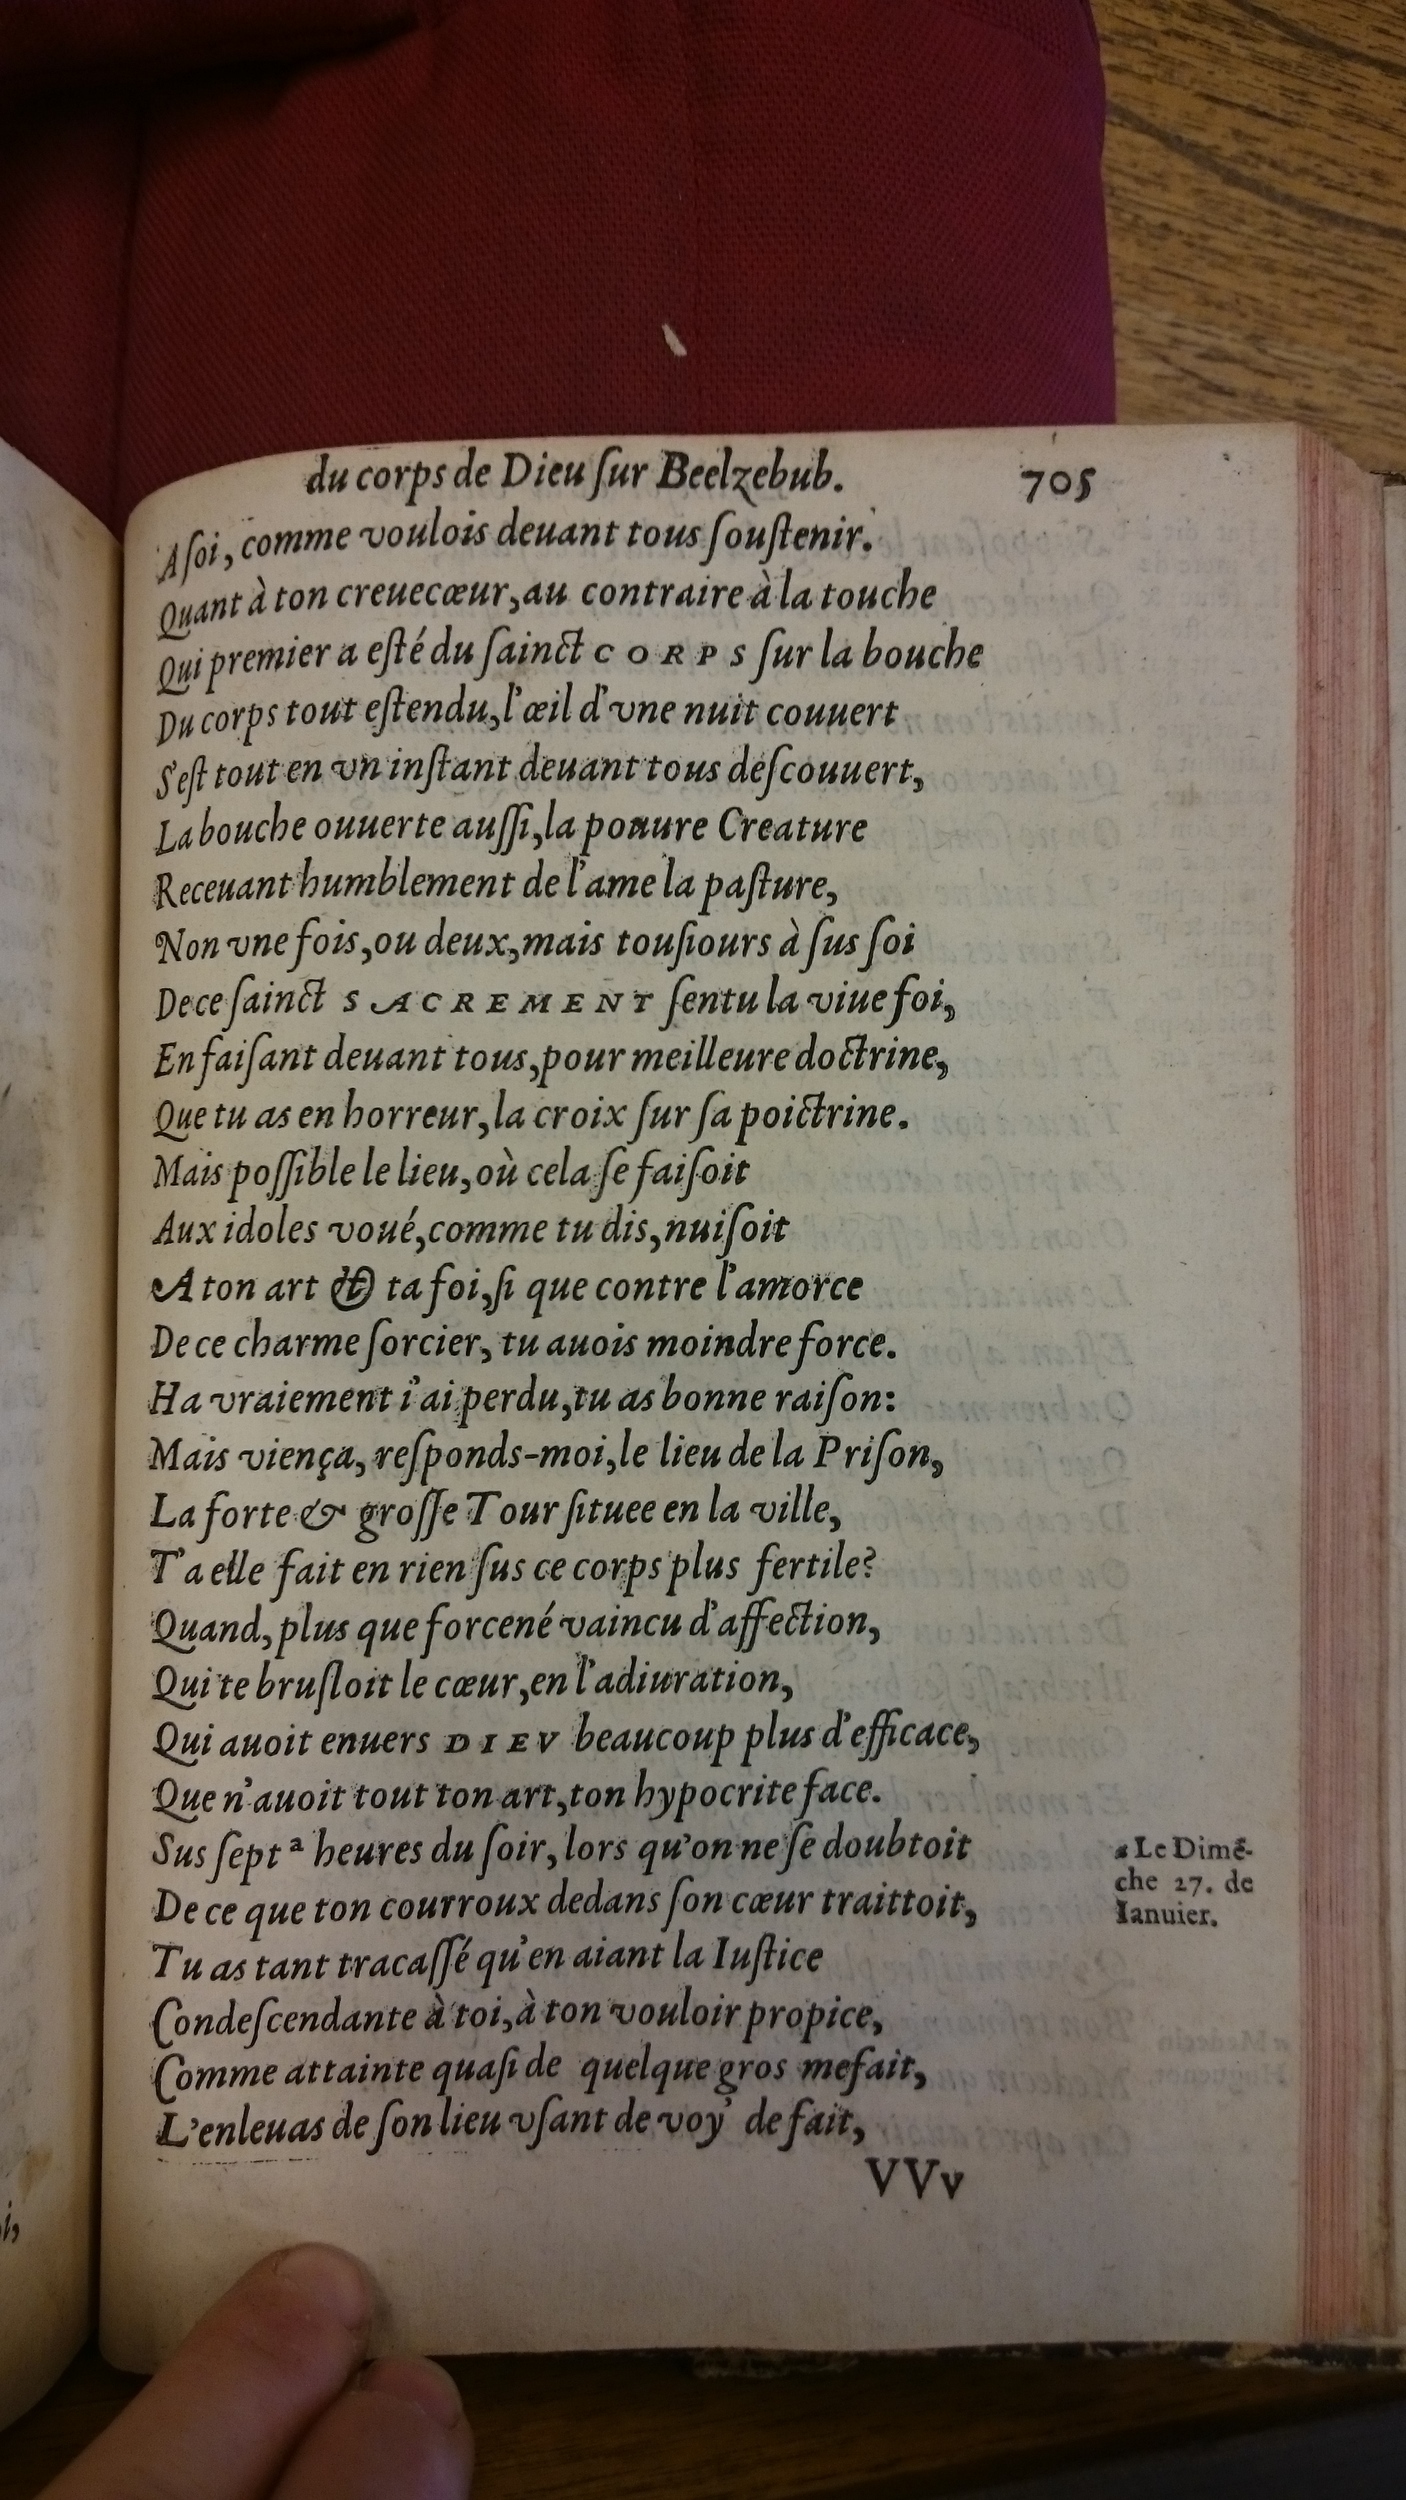 du corps de Dieu ſur Beelzebub. 705
A ſoi, comme voulois deuant tous ſouſtenir.
Quant à ton creuecœur, au contraire à la touche
Qui premier a eſté du ſainct CORPS ſur la bouche
Du corps tout eſtendu, l'œil d'vne nuit couuert
S'eſt tout en vn inſtant deuant tous deſcouuert,
La bouche ouuerte auſſi, la pouure Creature
Receuant humblement de l'ame la paſture,
Non vne fois, ou deux, mais touſiours à ſus ſoi
De ce ſainct SACREMENT ſentu la viue foi,
En faiſant deuant tous, pour meilleure doctrine,
Que tu as en horreur, la croix ſur ſa poictrine.
Mais poſſible le lieu, où cela ſe faiſoit
Aux idoles voué, comme tu dis, nuiſoit
A ton art & ta foi, ſi que contre l'amorce
De ce charme ſorcier, tu auois moindre force.
Ha vraiement i'ai perdu, tu as bonne raiſon:
Mais viença, reſponds-moi, le lieu de la Priſon,
La forte & groſſe Tour ſituee en la ville,
T'a elle fait en rien ſus ce corps plus fertile?
Quand, plus que forcené vaincu d'affection,
Qui te bruſloit le cœur, en l'adiuration,
Qui auoit enuers DIEV beaucoup plus d'efficace,
Que n'auoit tout ton art, ton hypocrite face.
Sus ſept ª heures du ſoir, lors qu'on ne ſe doubtoit
De ce que ton courroux dedans ſon cœur traittoit,
Tu as tant tracaſſé qu'en aiant la Iuſtice
Condeſcendante à toi, à ton vouloir propice,
Comme attainte quaſi de quelque gros mefait,
L'enleuas de ſon lieu vſant de voy' de fait,
VVv
a Le Dimē-
che 27. de
Ianuier.